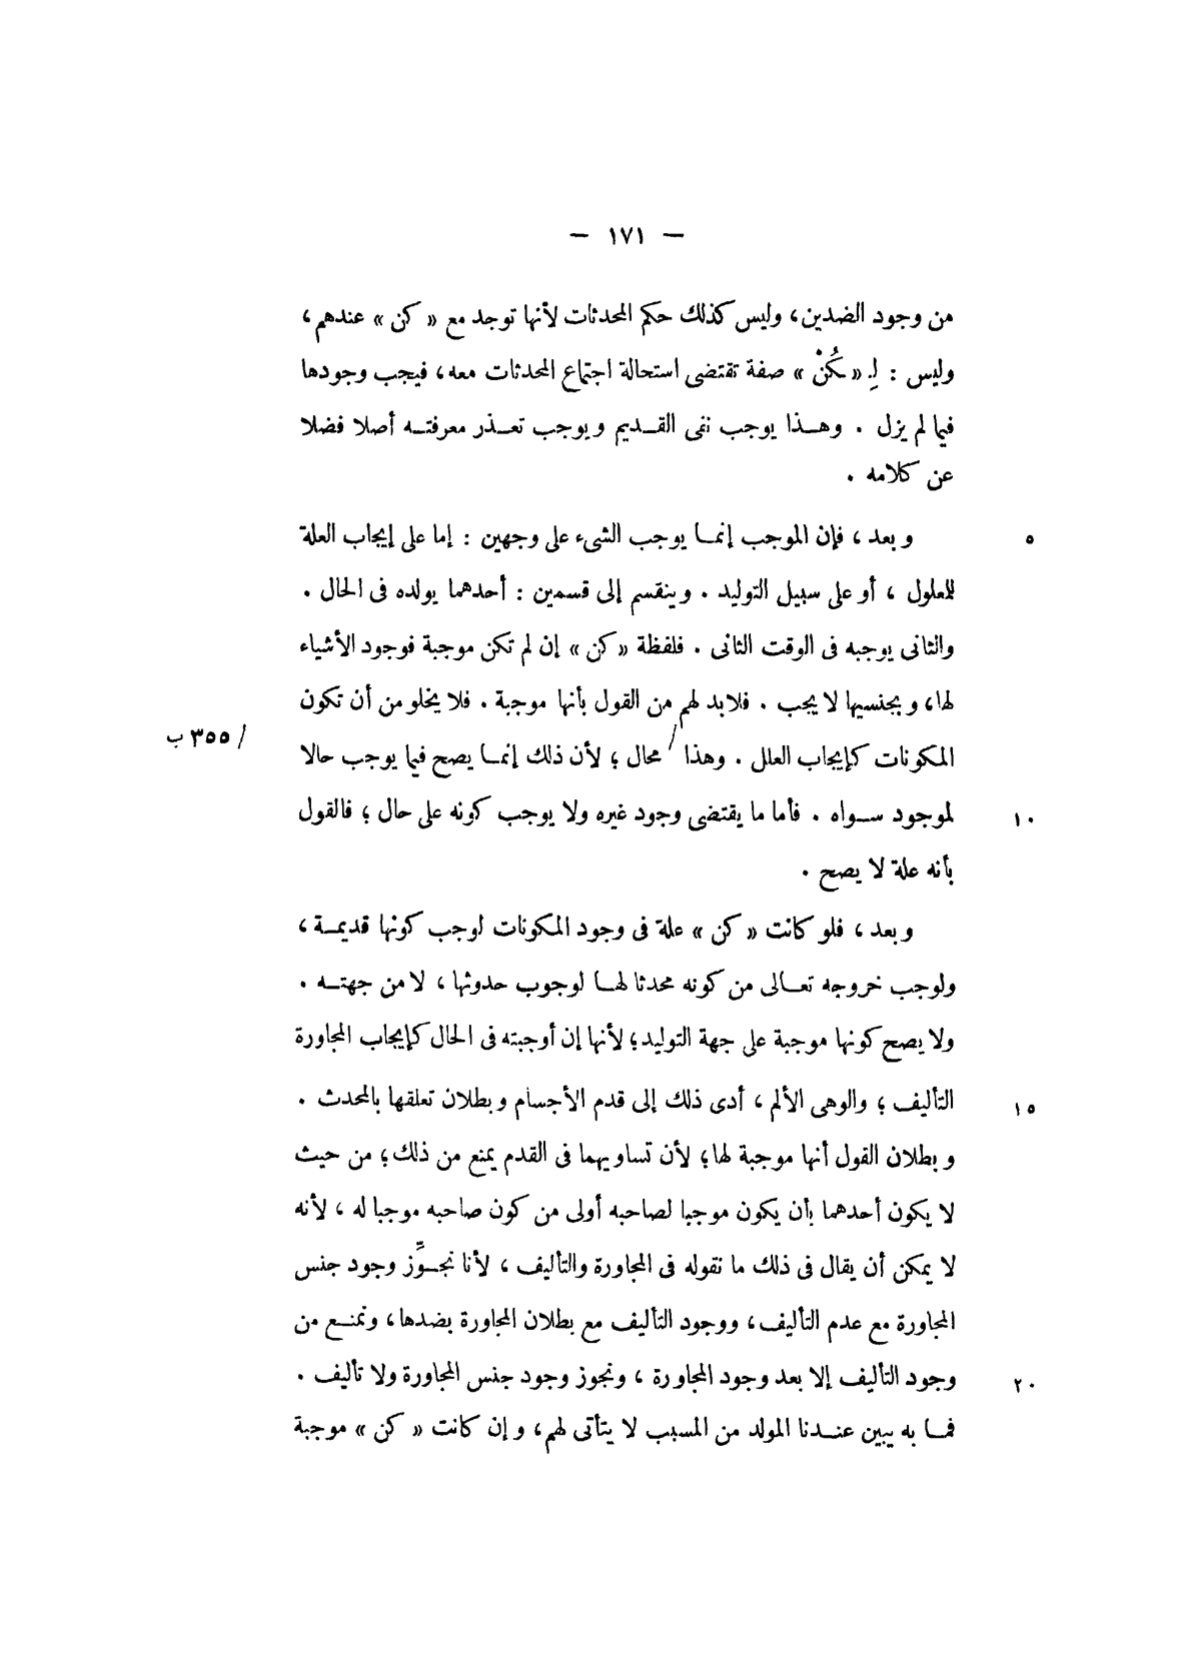 — ١٧١ —
من وجود الضدين، وليس كذلك حكم المحدثات لأنها توجد مع « كن » عندهم،
وليس : لِـ « كُنْ » صفة تقتضى استحالة اجتماع المحدثات معه، فيجب وجودها
فيما لم يزل . وهـذا يوجب نفى القـديم ويوجب تعـذر معرفتـه أصلا فضلا
عن كلامه .
٥ وبعد ، فإن الموجب إنمـا يوجب الشىء على وجهين : إما على إيجاب العلة
للعلول ، أو على سبيل التوليد . وينقسم إلى قسمين : أحدهما يولده فى الحال .
والثانى يوجبه فى الوقت الثانى . فلفظة « كن » إن لم تكن موجبة فوجود الأشياء
لها، وبجنسيها لا يجب . فلابد لهم من القول بأنها موجبة . فلا يخلو من أن تكون
المكونات كإيجاب العلل . وهذا / محال ؛ لأن ذلك إنمـا يصح فيما يوجب حالا
/ ٣٥٥ ب
١٠ لموجود سـواه . فأما ما يقتضى وجود غيره ولا يوجب كونه على حال ؛ فالقول
بأنه علة لا يصح .
وبعد ، فلو كانت « كن » علة فى وجود المكونات لوجب كونها قديمـة ،
ولوجب خروجه تعـالى من كونه محدثا لهـا لوجوب حدوثها ، لا من جهتـه .
ولا يصح كونها موجبة على جهة التوليد؛ لأنها إن أوجبته فى الحال كإيجاب المجاورة
١٥ التأليف ؛ والوهى الألم ، أدى ذلك إلى قدم الأجسام وبطلان تعلقها بالمحدث .
وبطلان القول أنها موجبة لها؛ لأن تساويهما فى القدم يمنع من ذلك؛ من حيث
لا يكون أحدهما بأن يكون موجبا لصاحبه أولى من كون صاحبه موجبا له ، لأنه
لا يمكن أن يقال فى ذلك ما نقوله فى المجاورة والتأليف ، لأنا نجـوِّز وجود جنس
المجاورة مع عدم التأليف، ووجود التأليف مع بطلان المجاورة بضدها، ونمنـع من
٢٠ وجود التأليف إلا بعد وجود المجاورة ، ونجوز وجود جنس المجاورة ولا تأليف .
فمـا به يبين عنـدنا المولد من المسبب لا يتأتى لهم، وإن كانت « كن » موجبة